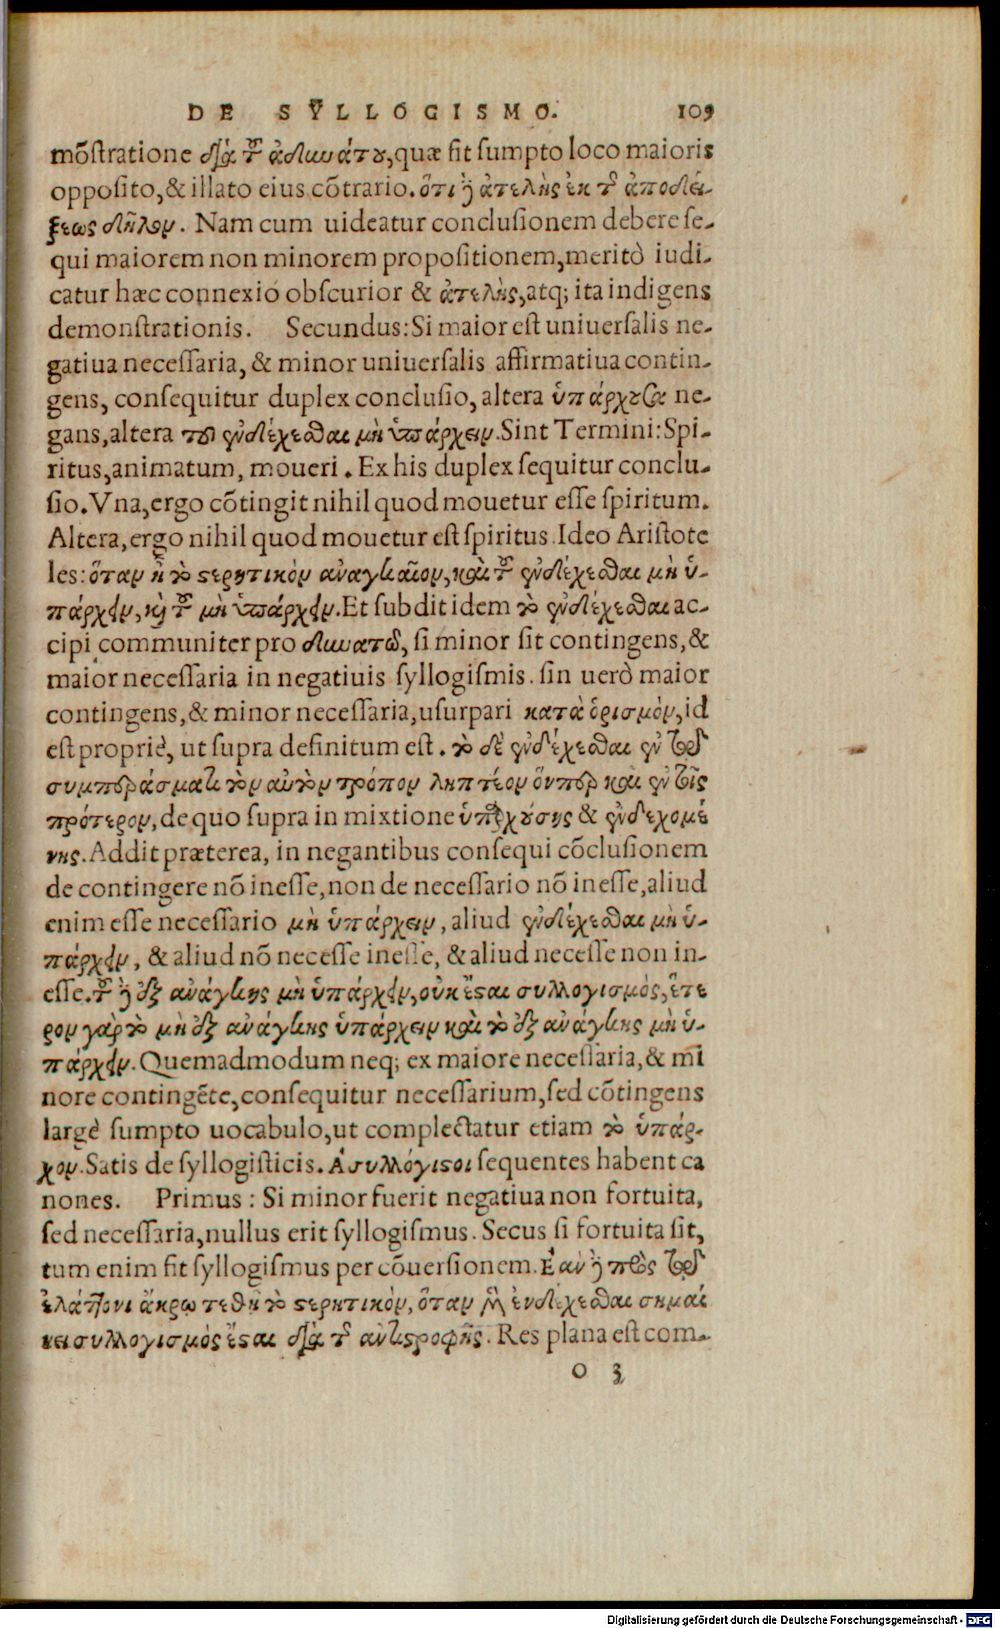 DE SVLLOGISMO. 109
mõstratione διὰ τοῦ ἀδυνάτου, quæ fit sumpto loco maioris
opposito, & illato eius cõtrario. ὅτι δὲ ἀτελὴς ἐκ τῆς ἀποδεί-
ξεως δῆλον. Nam cum uideatur conclusionem debere se-
qui maiorem non minorem propositionem, meritò iudi-
catur hæc connexio obscurior & ἀτελὴς, atq; ita indigens
demonstrationis. Secundus: Si maior est uniuersalis ne-
gatiua necessaria, & minor uniuersalis affirmatiua contin-
gens, consequitur duplex conclusio, altera ὑπάρχουσα ne-
gans, altera τοῦ ἐνδέχεσθαι μὴ ὑπάρχειν. Sint Termini: Spi-
ritus, animatum, moueri. Ex his duplex sequitur conclu-
sio. Vna, ergo cõtingit nihil quod mouetur esse spiritum.
Altera, ergo nihil quod mouetur est spiritus. Ideo Aristote
les: ὅταν ᾖ τὸ στερητικὸν ἀναγκαῖον, καὶ τοῦ ἐνδέχεσθαι μὴ ὑ-
πάρχειν, καὶ τοῦ μὴ ὑπάρχειν. Et subdit idem τὸ ἐνδέχεσθαι ac-
cipi communiter pro δυνατῶ, si minor sit contingens, &
maior necessaria in negatiuis syllogismis. sin uerò maior
contingens, & minor necessaria, usurpari κατὰ ὁρισμὸν, id
est propriè, ut supra definitum est. τὸ δὲ ἐνδέχεσθαι ἐν τῷ
συμπεράσματι τὸν αὐτὸν τρόπον ληπτέον ὅνπερ καὶ ἐν τοῖς
πρότερον, de quo supra in mixtione ὑπαρχούσης & ἐνδεχομέ
νης. Addit præterea, in negantibus consequi cõclusionem
de contingere nõ inesse, non de necessario nõ inesse, aliud
enim esse necessario μὴ ὑπάρχειν, aliud ἐνδέχεσθαι μὴ ὑ-
πάρχειν, & aliud nõ necesse inesse, & aliud necesse non in-
esse. τοῦ δὲ ἐξ ἀνάγκης μὴ ὑπάρχειν, οὐκ ἔσται συλλογισμὸς, ἕτε
ρον γὰρ τὸ μὴ ἐξ ἀνάγκης ὑπάρχειν καὶ τὸ ἐξ ἀνάγκης μὴ ὑ-
πάρχειν. Quemadmodum neq; ex maiore necessaria, & mi
nore contingẽte, consequitur necessarium, sed cõtingens
largè sumpto uocabulo, ut complectatur etiam τὸ ὑπάρ-
χον. Satis de syllogisticis. Ἀσυλλόγιστοι sequentes habent ca
nones. Primus: Si minor fuerit negatiua non fortuita,
sed necessaria, nullus erit syllogismus. Secus si fortuita sit,
tum enim fit syllogismus per cõuersionem. Ἐὰν δὲ πρὸς τῷ
ἐλάττονι ἄκρῳ τεθῇ τὸ στερητικὸν, ὅταν μὲν ἐνδέχεσθαι σημαί
νει συλλογισμὸς ἔσται διὰ τῆς ἀντιστροφῆς. Res plana est com-
O 3
Digitalisierung gefördert durch die Deutsche Forschungsgemeinschaft - DFG